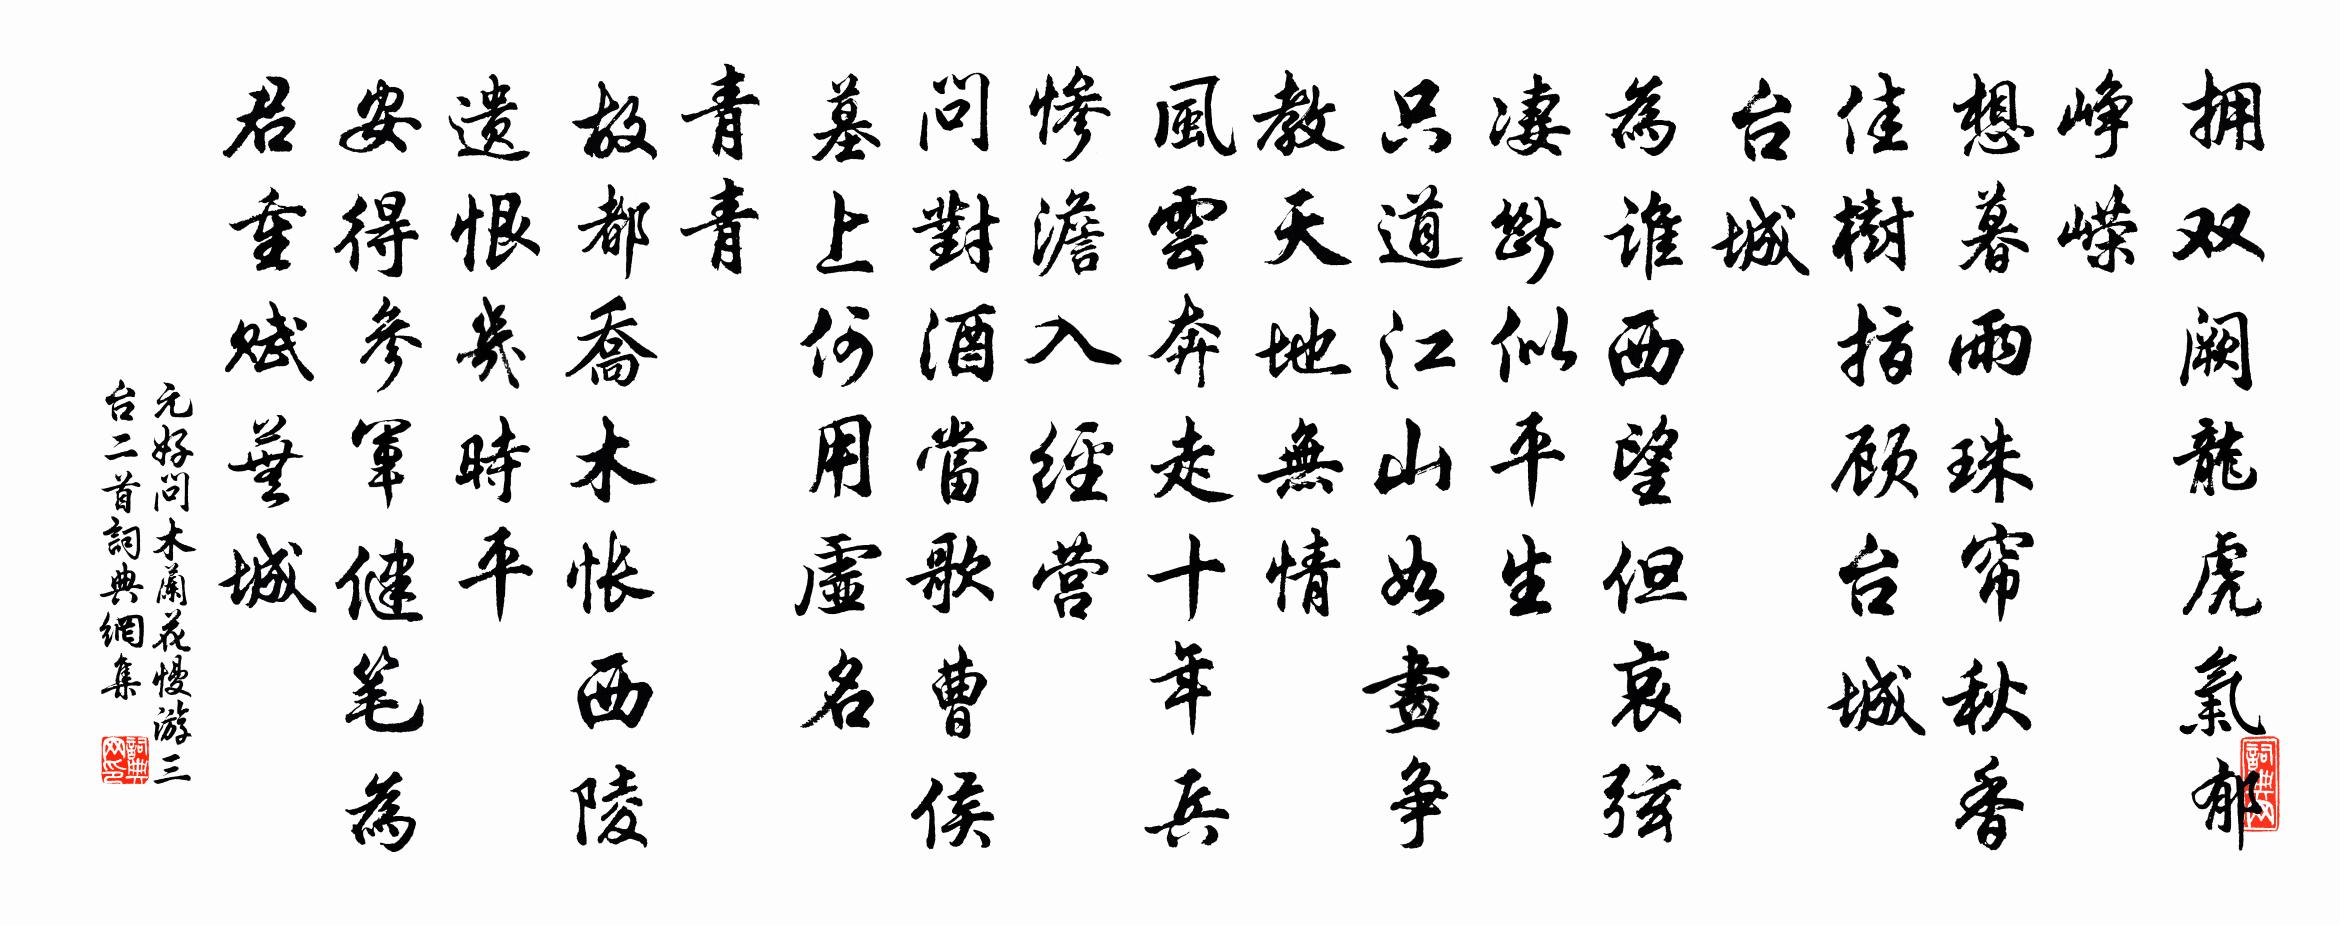 拥双阙龍虎氣郁
峥嵘
想暮雨珠帘秋香
佳樹指顾台城
台城
為谁西望但哀弦
凄断似平生
只道江山如畫争
教天地無情
風雲奔走十年兵
惨澹入經营
問對酒當歌曹侯
墓上何用虚名
青青
故都喬木怅西陵
遗恨幾時平
安得参軍健笔為
君重赋蕪城
元好問木蘭花慢游三
台二首詞典網集